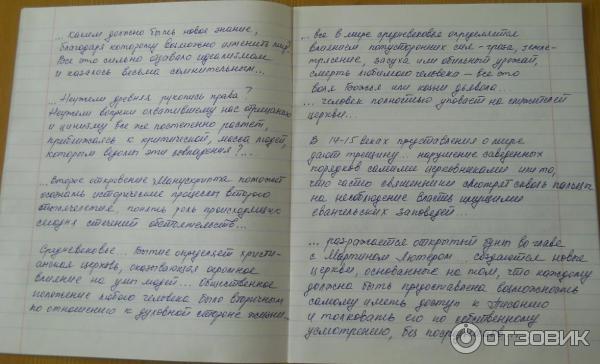 ... каким должно быть новое знание,
благодаря которому возможно изменить мир.
Все это сильно отдавало идеализмом
и казалось весьма сомнительным...
... Неужели древняя рукопись права?
Неужели вопреки охватившему нас отрицанию
и цинизму все же постепенно растет,
приближаясь к критической, масса людей,
которым ведомы эти совпадения?...
... второе откровение Манускрипта поможет
осознать исторические процессы второго
тысячелетия, понять роль происходящих
сегодня стечений обстоятельств...
Средневековье... Бытие определяет христи-
анская церковь, оказывающая огромное
влияние на умы людей... Общественное
положение любого человека было вторичным
по отношению к духовной стороне жизни...
... все в мире средневековья определяется
влиянием потусторонних сил - гроза, земле-
трясение, засуха или обильный урожай,
смерть любимого человека - все это
воля Божья или козни дьявола...
... человек полностью уповает на служителей
церкви...
В 14-15 веках представления о мире
дают трещину... нарушение заверенных
порядков самими церковниками или то,
что частью священники смотрят сквозь пальцы
на несоблюдение власть имущими
евангельских заповедей...
... разражается открытый бунт во главе
с Мартином Лютером... создаются новые
церкви, основанные на том, что каждому
должна быть предоставлена возможность
самому иметь доступ к Писанию
и толковать его по собственному
усмотрению, без
ОТЗОВИК